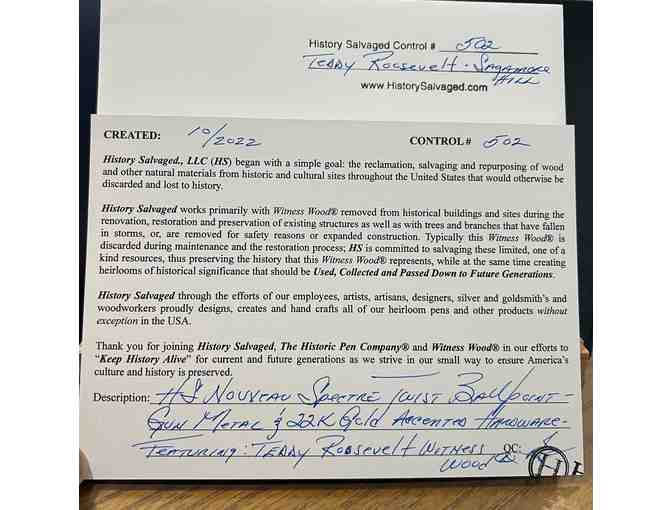 History Salvaged Control # 502
Teddy Roosevelt - Sagamore
Hill
www.HistorySalvaged.com
CREATED: 10/2022 CONTROL# 502
History Salvaged., LLC (HS) began with a simple goal: the reclamation, salvaging and repurposing of wood
and other natural materials from historic and cultural sites throughout the United States that would otherwise be
discarded and lost to history.
History Salvaged works primarily with Witness Wood® removed from historical buildings and sites during the
renovation, restoration and preservation of existing structures as well as with trees and branches that have fallen
in storms, or, are removed for safety reasons or expanded construction. Typically this Witness Wood® is
discarded during maintenance and the restoration process; HS is committed to salvaging these limited, one of a
kind resources, thus preserving the history that this Witness Wood® represents, while at the same time creating
heirlooms of historical significance that should be Used, Collected and Passed Down to Future Generations.
History Salvaged through the efforts of our employees, artists, artisans, designers, silver and goldsmith's and
woodworkers proudly designs, creates and hand crafts all of our heirloom pens and other products without
exception in the USA.
Thank you for joining History Salvaged, The Historic Pen Company® and Witness Wood® in our efforts to
"Keep History Alive" for current and future generations as we strive in our small way to ensure America's
culture and history is preserved.
Description: HS Nouveau Spectre Twist Ballpoint -
Gun Metal & 22K Gold Accented Hardware -
Featuring: Teddy Roosevelt Witness QC:
Wood
H